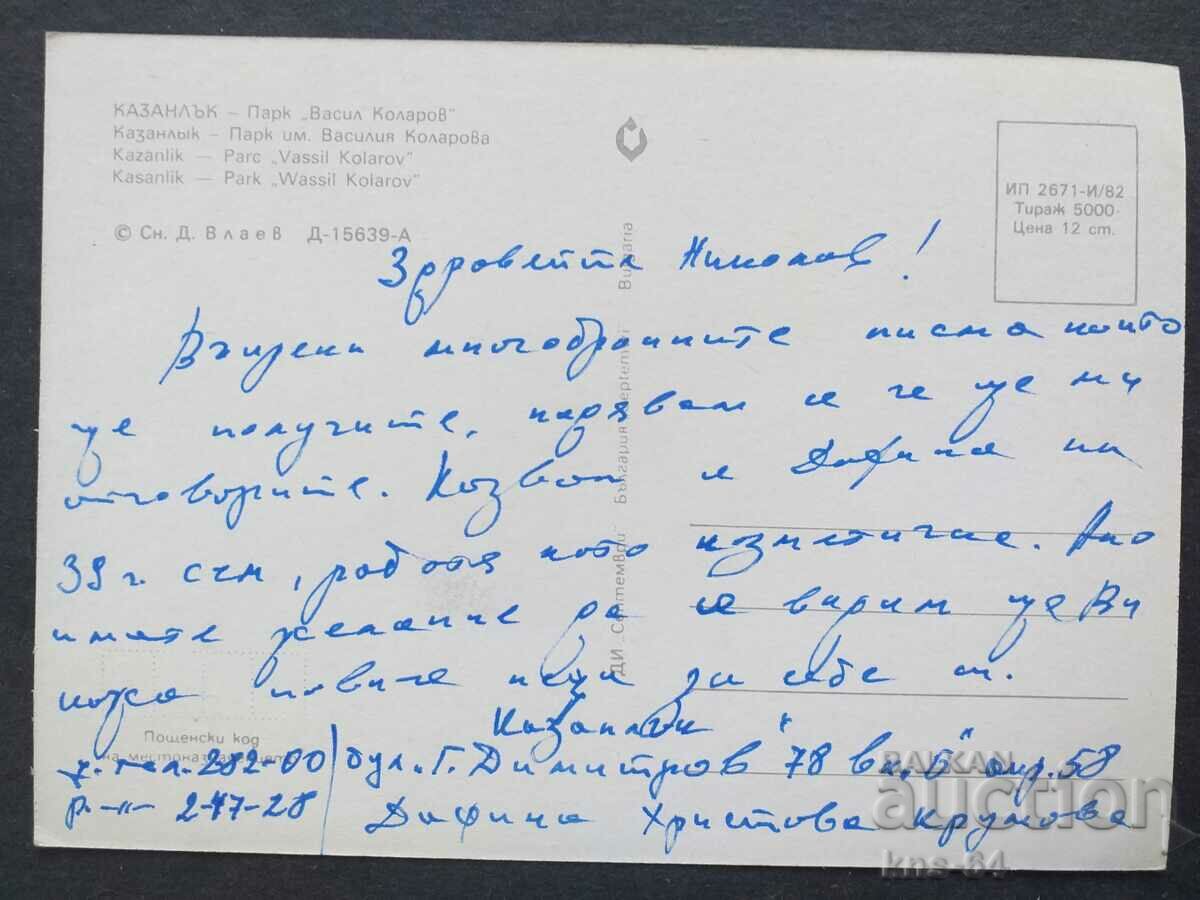 КАЗАНЛЪК — Парк „Васил Коларов"
Казанлык — Парк им. Василия Коларова
Kazanlik — Parc „Vassil Kolarov"
Kasanlik — Park „Wassil Kolarov"
© Сн. Д. Влаев Д-15639-А
ИП 2671-И/82
Тираж 5000
Цена 12 ст.
ДИ „Септември България Septemvri Bulgaria
Здравейте Николов!
Въпреки многобройните писма които
ще получите, надявам се че ще ми
отговорите. Казвам се Дафина на
39 г. съм, работя като козметичка. Ако
имате желание да се видим ще Ви
кажа повече неща за себе си.
Казанлък
бул. Г. Димитров "78 вх. Б" ап. 58
Дафина Христова Крумова
Пощенски код
на местонахождението
д. тел. 282-00
р. -"- 2-47-28
BALKAN
auction
kns-64